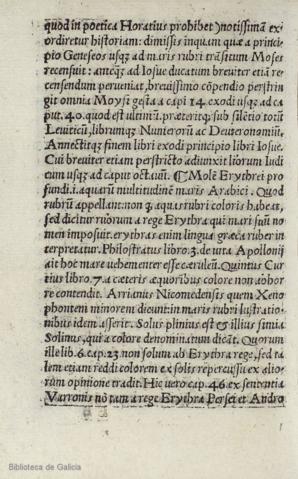 quod in poetica Horatius prohibet ⁊notissimā ex
ordiretur historiam: dimissis inquam quæ a princi-
pio Geneseos usq; ad maris rubri trāsitum Moses
recensuit: anteq; ad Iosue ducatum breuiter etiā re
censendum perueniat, breuissimo cōpendio perstrin
git omnia Moysi gesta a capi 14. exodi usq; ad ca
put. 40. quod est ultimū. præteritq; sub silētio totū
Leuiticū, librumq; Numerorū ac Deuteronomiū.
Annectitq; finem libri exodi principio libri Iosue.
Cui breuiter etiam perstricto adiunxit librorum Iudi
cum usq; ad caput octauū. ¶ Mole Erythrei pro
fundi. i. aquarū multitudine maris Arabici. Quod
rubrū appellant: non q̨ aquas rubri coloris habeat,
sed dicitur rubrum a rege Erythra qui mari suū no
men imposuit. erythras enim lingua græca ruber in
terpretatur. Philostratus libro. 3. de uita Apollonij
ait hoc mare uehementer esse cæruleū. Quintus Cur
tius libro. 7. a cæteris æquoribus colore non abhor
re contendit. Arrianus Nicomedensis quem Xeno
phontem minorem dicunt in maris rubri lustratio-
nibus idem asserit. Solus plinius est & illius simia
Solinus, qui a colore denominatum dicāt. Quorum
ille lib. 6. cap. 23. non solum ab Erythra rege, sed ta
lem etiam reddi colorem ex solis repercussu ex alio-
rum opinione tradit. Hic uero cap. 46. ex sententia
Varronis nō tam a rege Erythra Persei et Andro
Biblioteca de Galicia